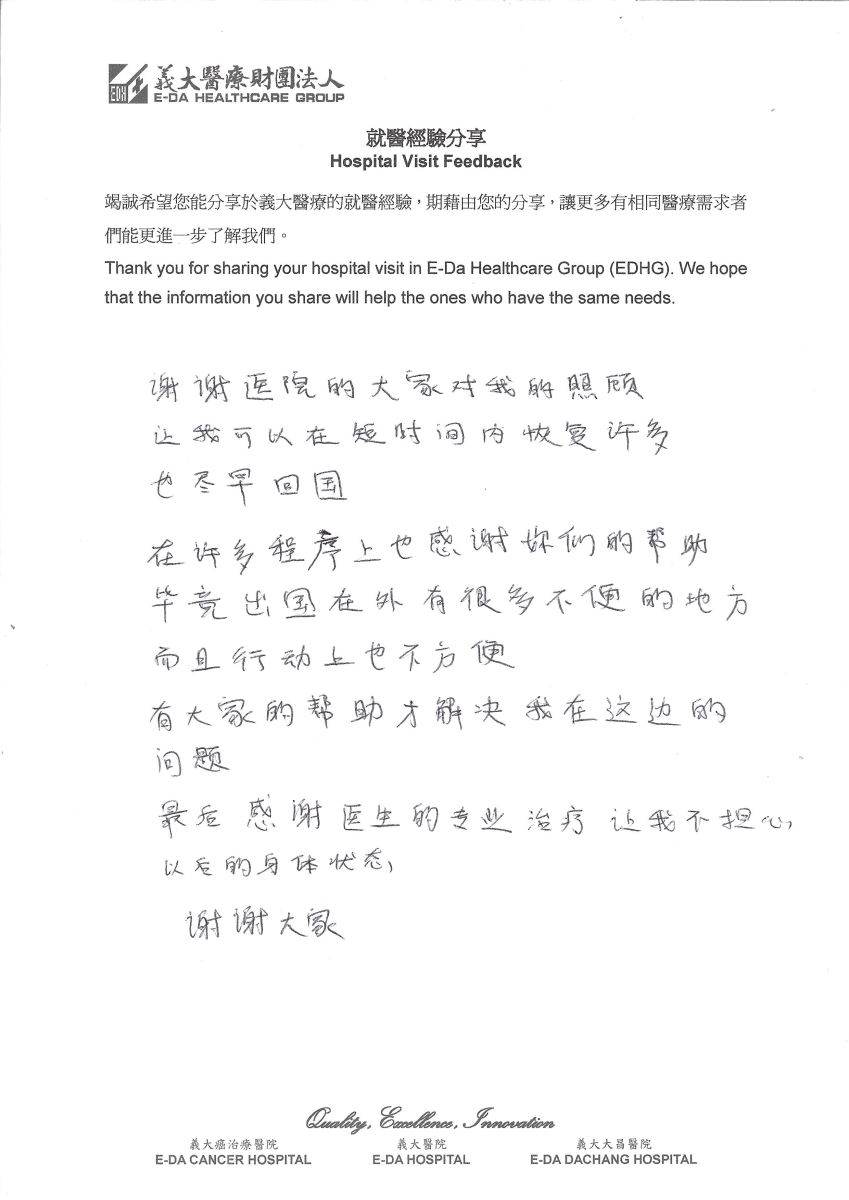 EDH 義大醫療財團法人
E-DA HEALTHCARE GROUP
就醫經驗分享
Hospital Visit Feedback
竭誠希望您能分享於義大醫療的就醫經驗，期藉由您的分享，讓更多有相同醫療需求者
們能更進一步了解我們。
Thank you for sharing your hospital visit in E-Da Healthcare Group (EDHG). We hope
that the information you share will help the ones who have the same needs.
谢谢医院的大家对我的照顾
让我可以在短时间内恢复许多
也尽早回国
在许多程序上也感谢妳们的帮助
毕竟出国在外有很多不便的地方
而且行动上也不方便
有大家的帮助才解决我在这边的
问题
最后感谢医生的专业治疗让我不担心,
以后的身体状态,
谢谢大家
Quality, Excellence, Innovation
義大癌治療醫院 義大醫院 義大大昌醫院
E-DA CANCER HOSPITAL E-DA HOSPITAL E-DA DACHANG HOSPITAL